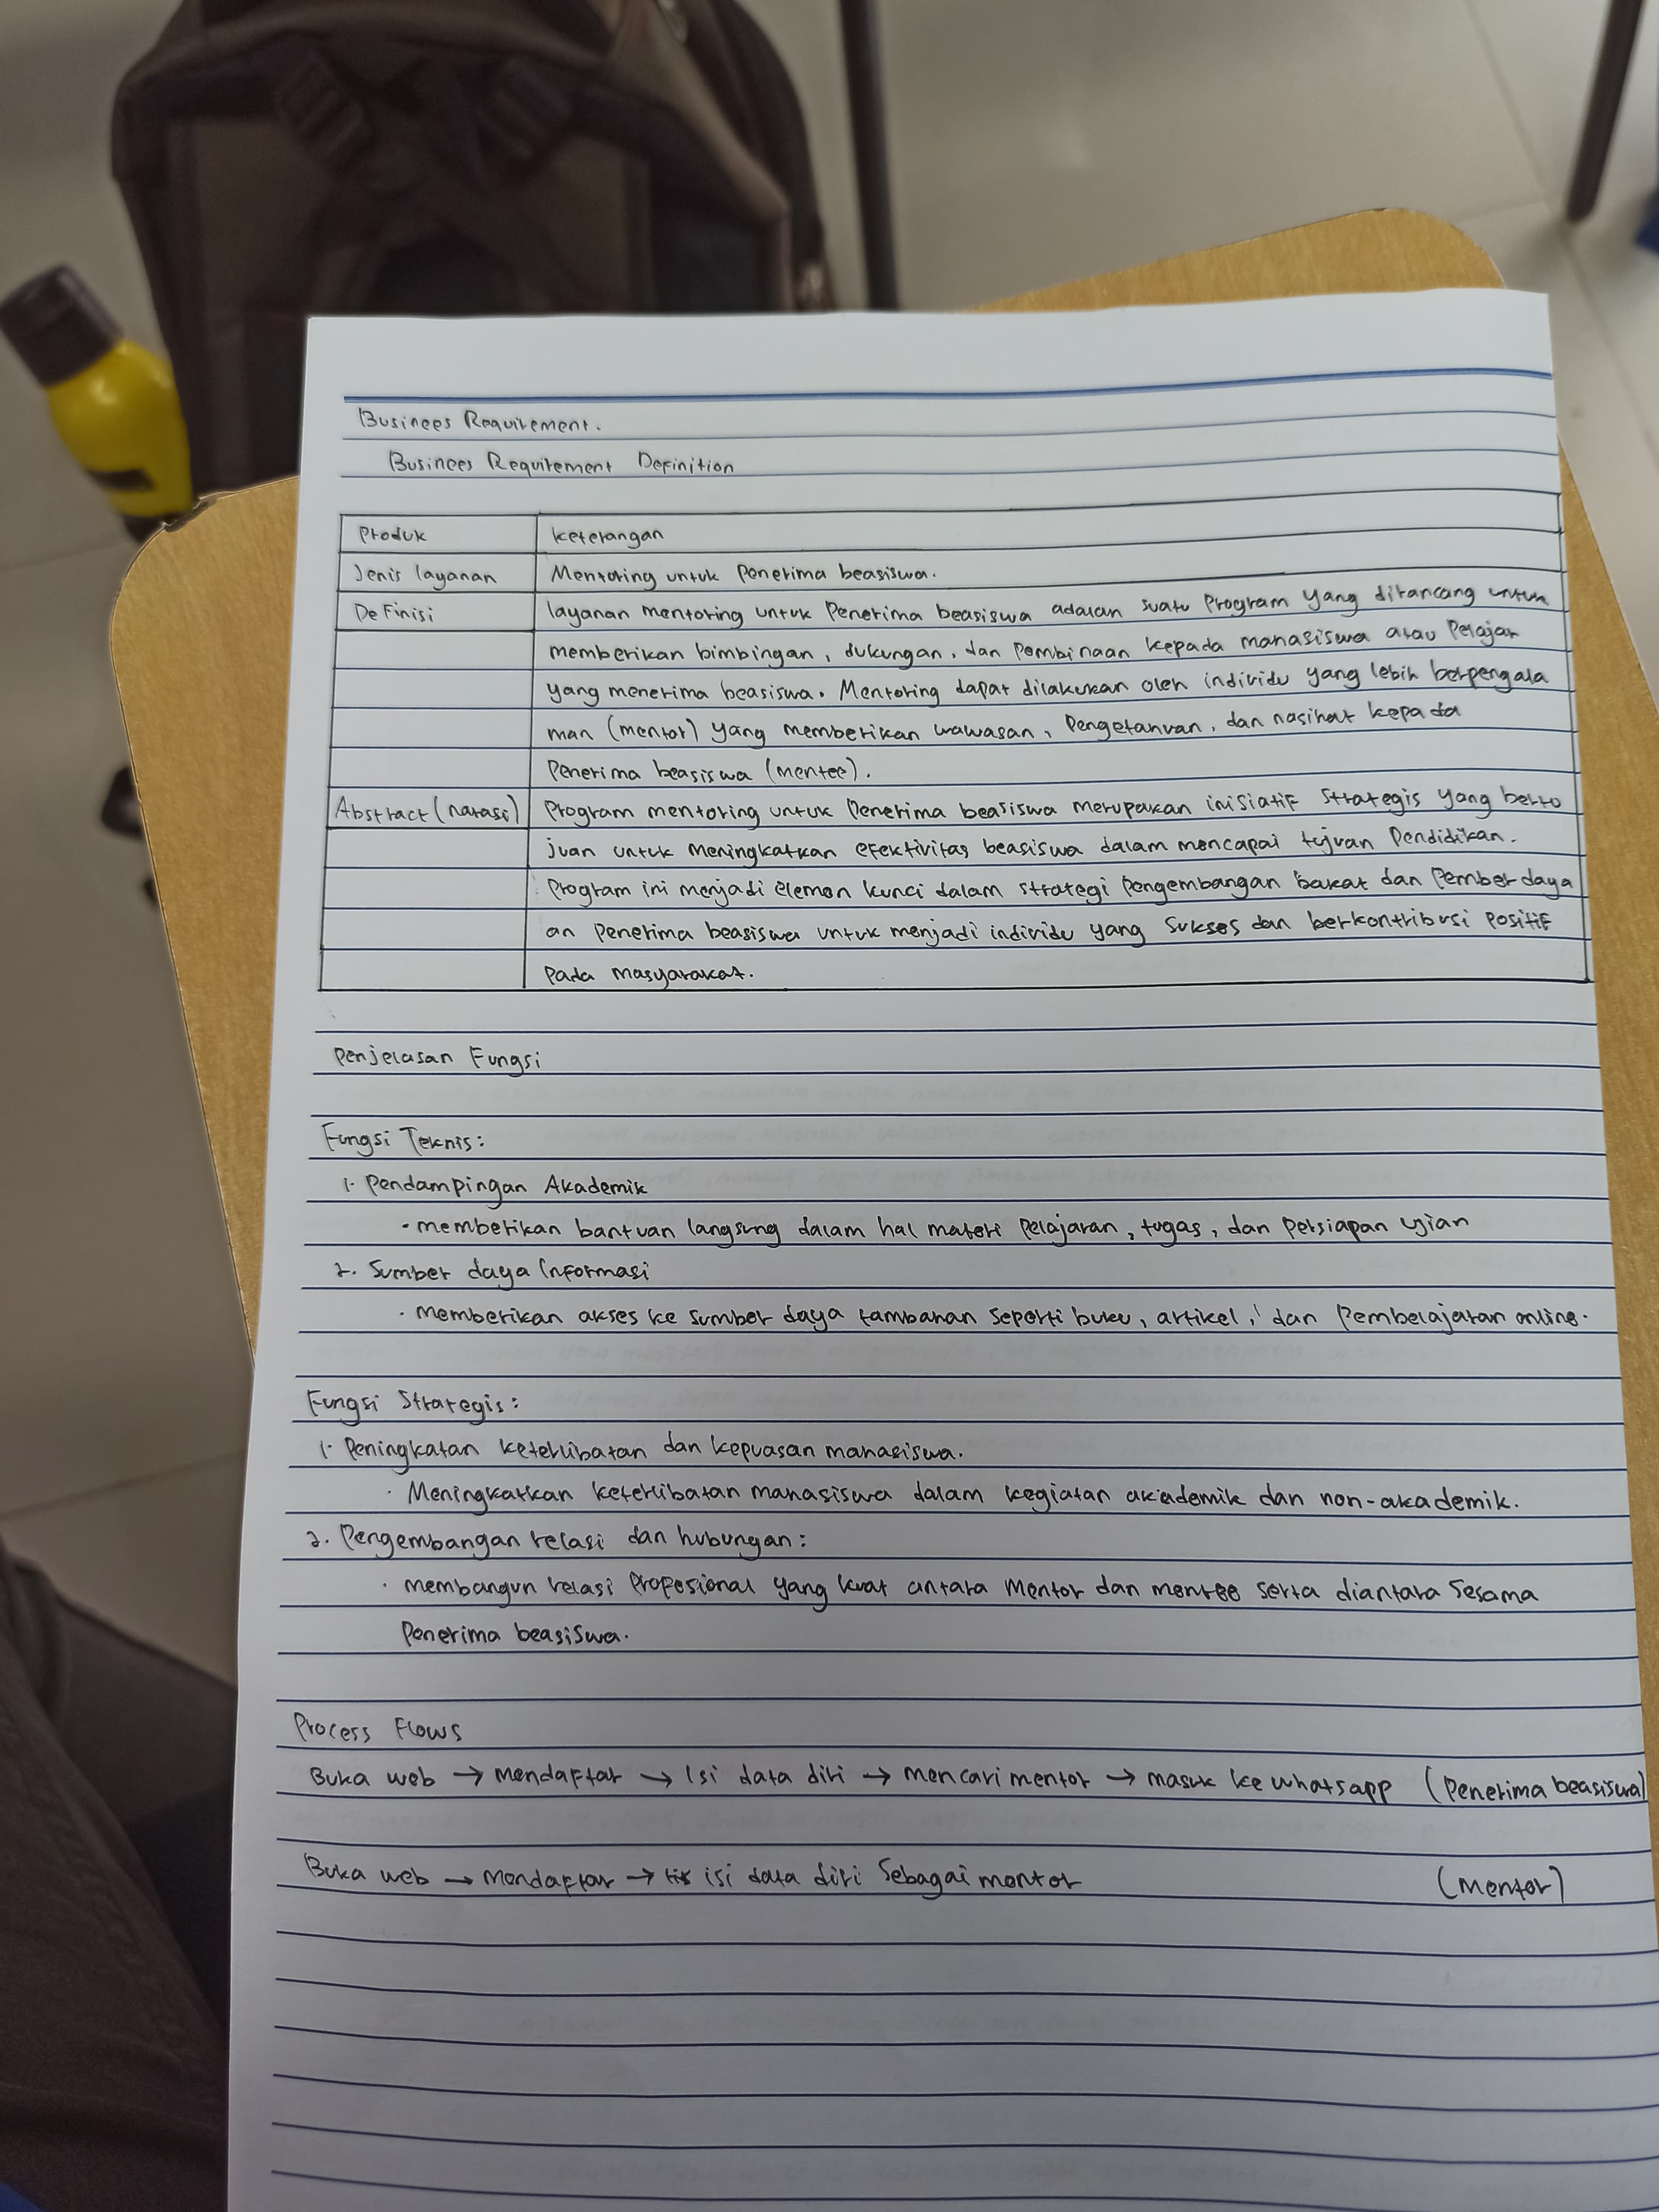 Business Requirement.
Business Requirement Definition
Produk keterangan
Jenis layanan Mentoring untuk Penerima beasiswa.
Definisi layanan mentoring untuk Penerima beasiswa adalah suatu Program yang dirancang untuk
memberikan bimbingan, dukungan, dan Pembinaan kepada mahasiswa atau Pelajar
yang menerima beasiswa. Mentoring dapat dilakukan oleh individu yang lebih berpengala
man (mentor) yang memberikan wawasan, Pengetahuan, dan nasihat kepada
Penerima beasiswa (mentee).
Abstract (narasi) Program mentoring untuk Penerima beasiswa merupakan inisiatif strategis yang bertu
juan untuk meningkatkan efektivitas beasiswa dalam mencapai tujuan Pendidikan.
Program ini menjadi elemen kunci dalam strategi pengembangan bakat dan Pemberdaya
an Penerima beasiswa untuk menjadi individu yang sukses dan berkontribusi positif
Pada masyarakat.
Penjelasan Fungsi
Fungsi Teknis:
1. Pendampingan Akademik
• memberikan bantuan langsung dalam hal materi pelajaran, tugas, dan Persiapan ujian
2. Sumber daya Informasi
• Memberikan akses ke sumber daya tambahan seperti buku, artikel, dan Pembelajaran online.
Fungsi Strategis:
1. Peningkatan keterlibatan dan kepuasan mahasiswa.
• Meningkatkan keterlibatan mahasiswa dalam kegiatan akademik dan non-akademik.
2. Pengembangan relasi dan hubungan:
• membangun relasi Profesional yang kuat antara Mentor dan mentee serta diantara Sesama
Penerima beasiswa.
Process Flows
Buka web → mendaftar → Isi data diri → mencari mentor → masuk ke whatsapp (Penerima beasiswa)
Buka web → Mendaftar → isi data diri Sebagai mentor (Mentor)